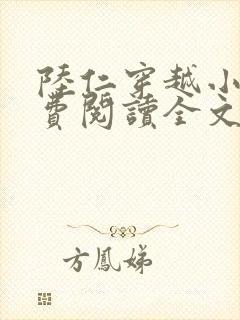 陸仁穿越小
費閱讀全文
方鳳娣